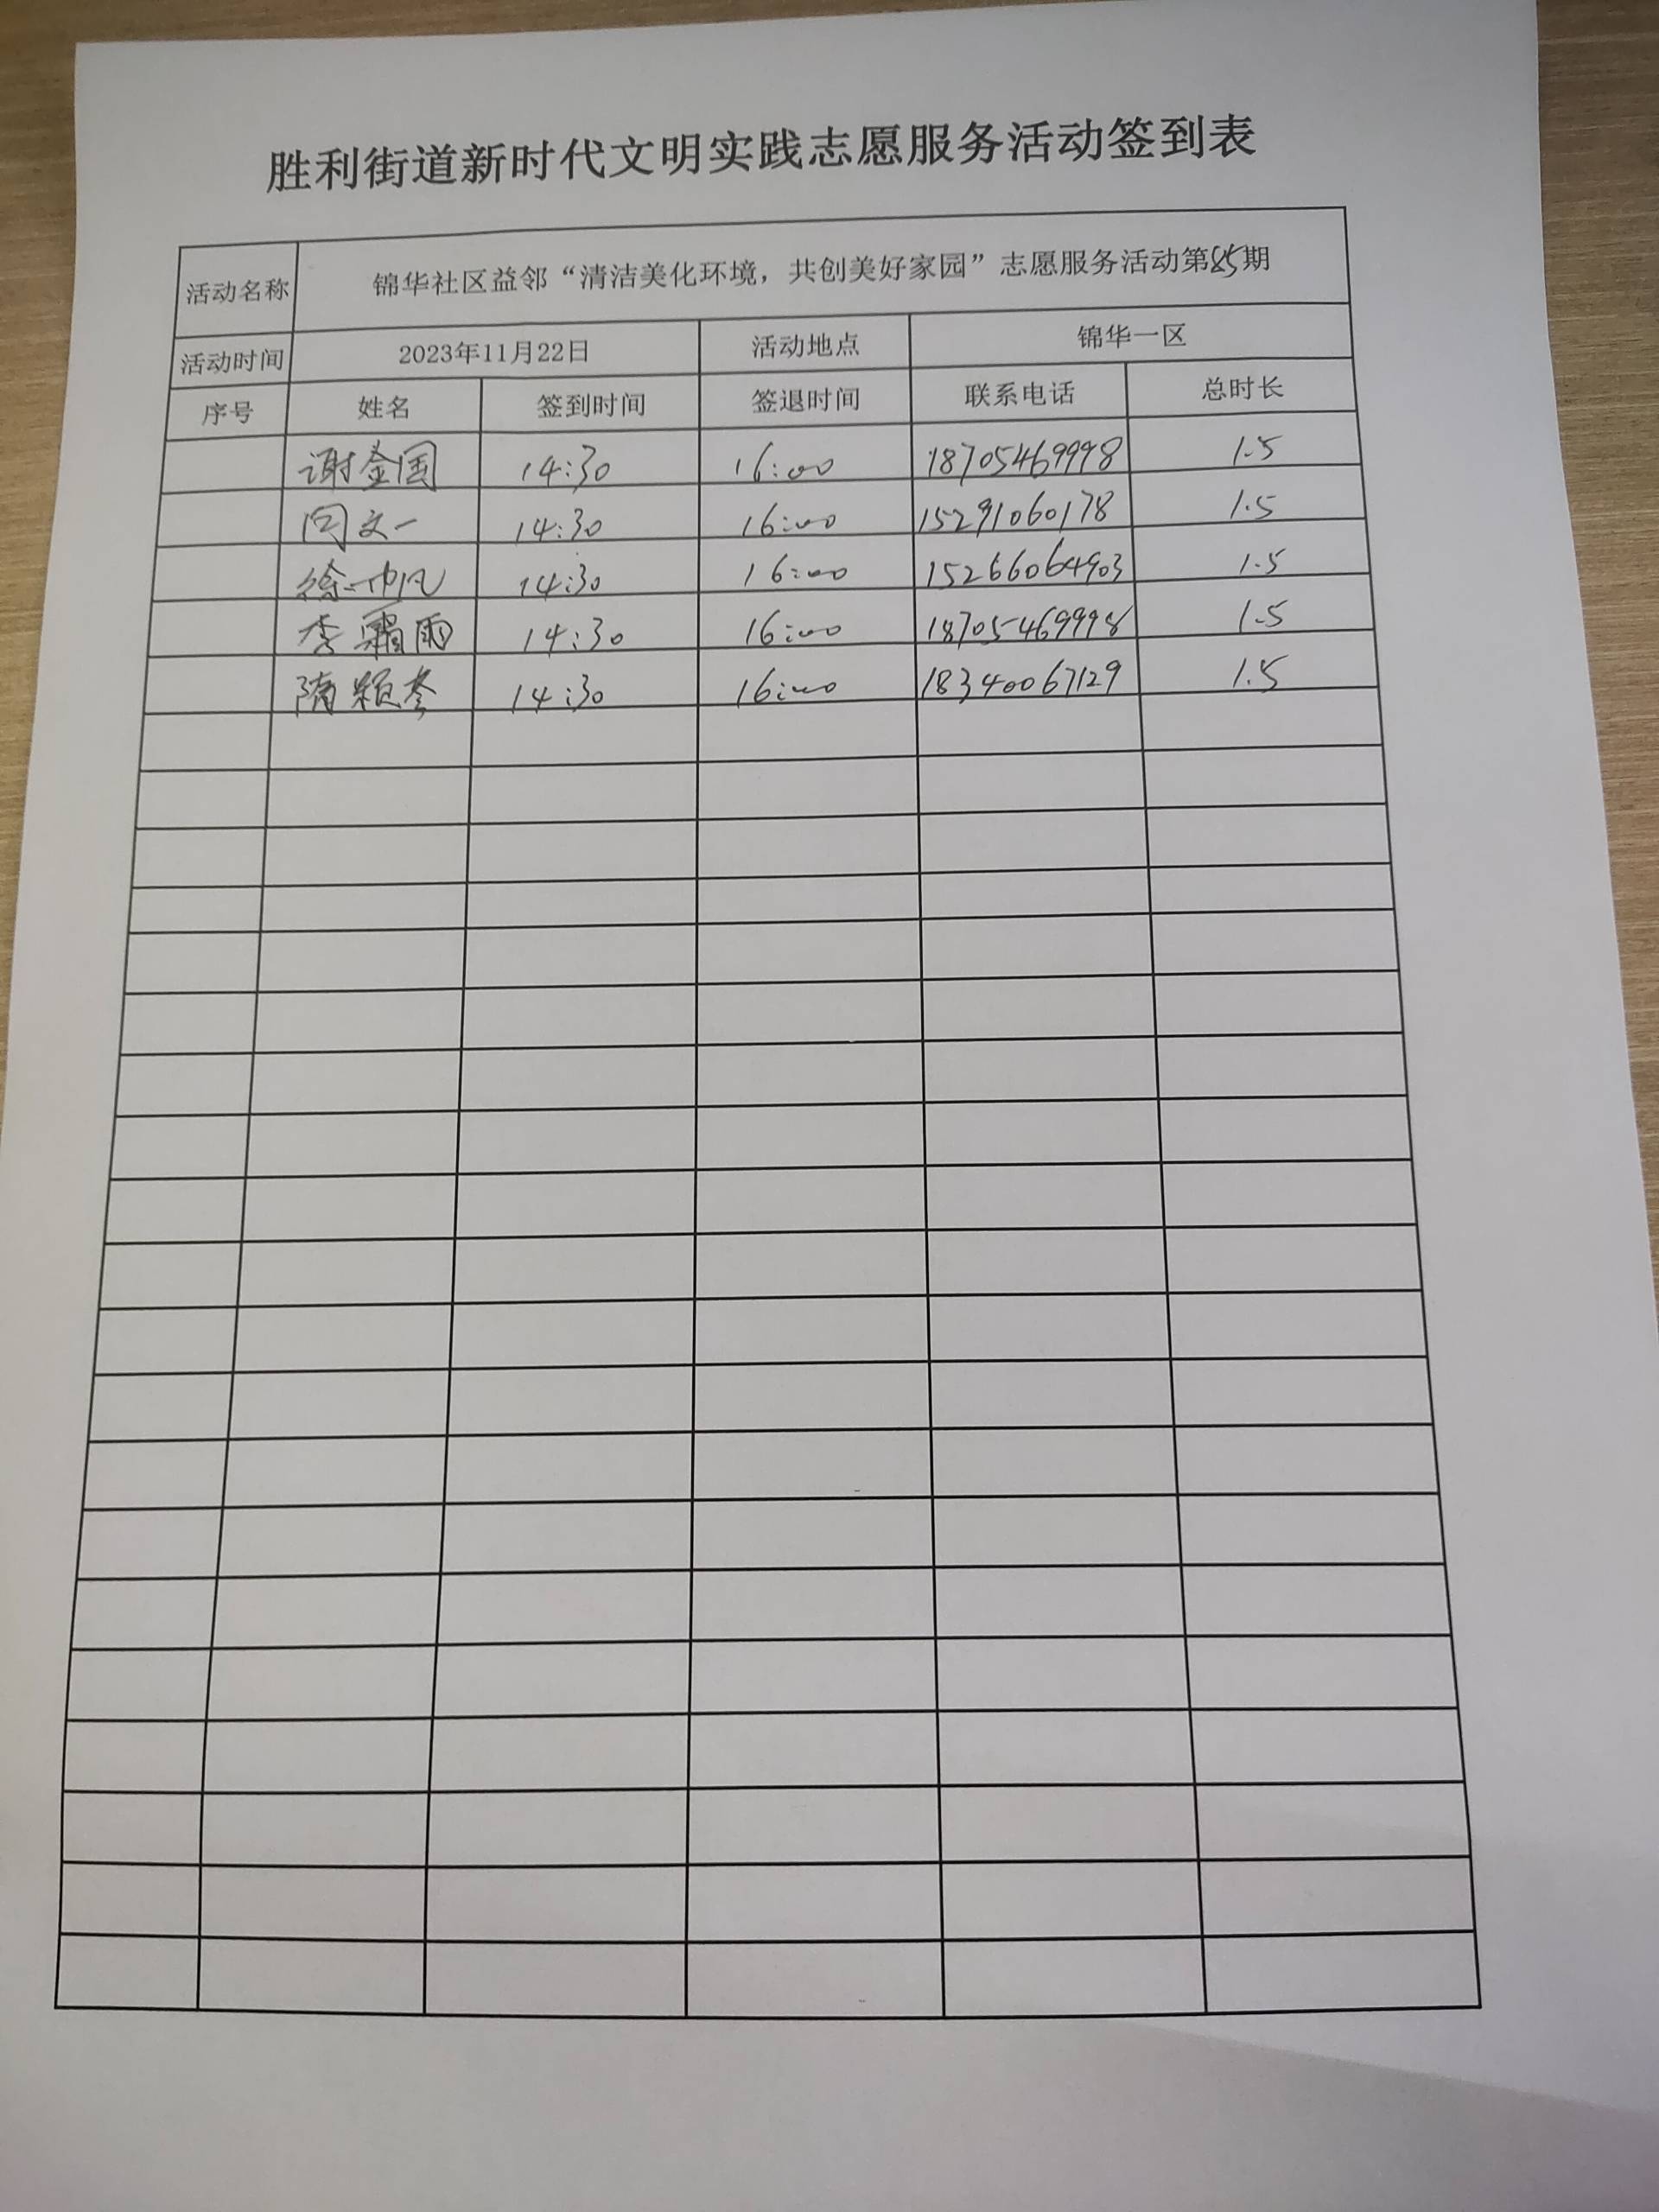 胜利街道新时代文明实践志愿服务活动签到表
活动名称 锦华社区益邻“清洁美化环境，共创美好家园”志愿服务活动第85期
活动时间 2023年11月22日 活动地点 锦华一区
序号 姓名 签到时间 签退时间 联系电话 总时长
谢金国 14:30 16:00 18705469998 1.5
闫文一 14:30 16:00 15291060178 1.5
徐 14:30 16:00 15266064903 1.5
李霜雨 14:30 16:00 18705469998 1.5
隋颖参 14:30 16:00 18340067129 1.5